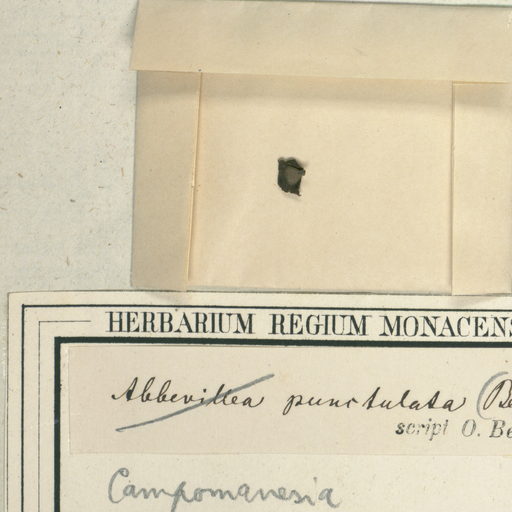 HERBARIUM REGIUM MONACENS
Abbevillea punctulata (Be
script O. Be
Campomanesia